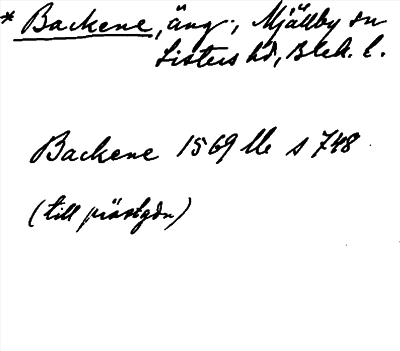 * Backene, äng, Mjällby sn
Listers hd, Blek. l.
Backene 1569 Ue s 748
(till prästgdn)